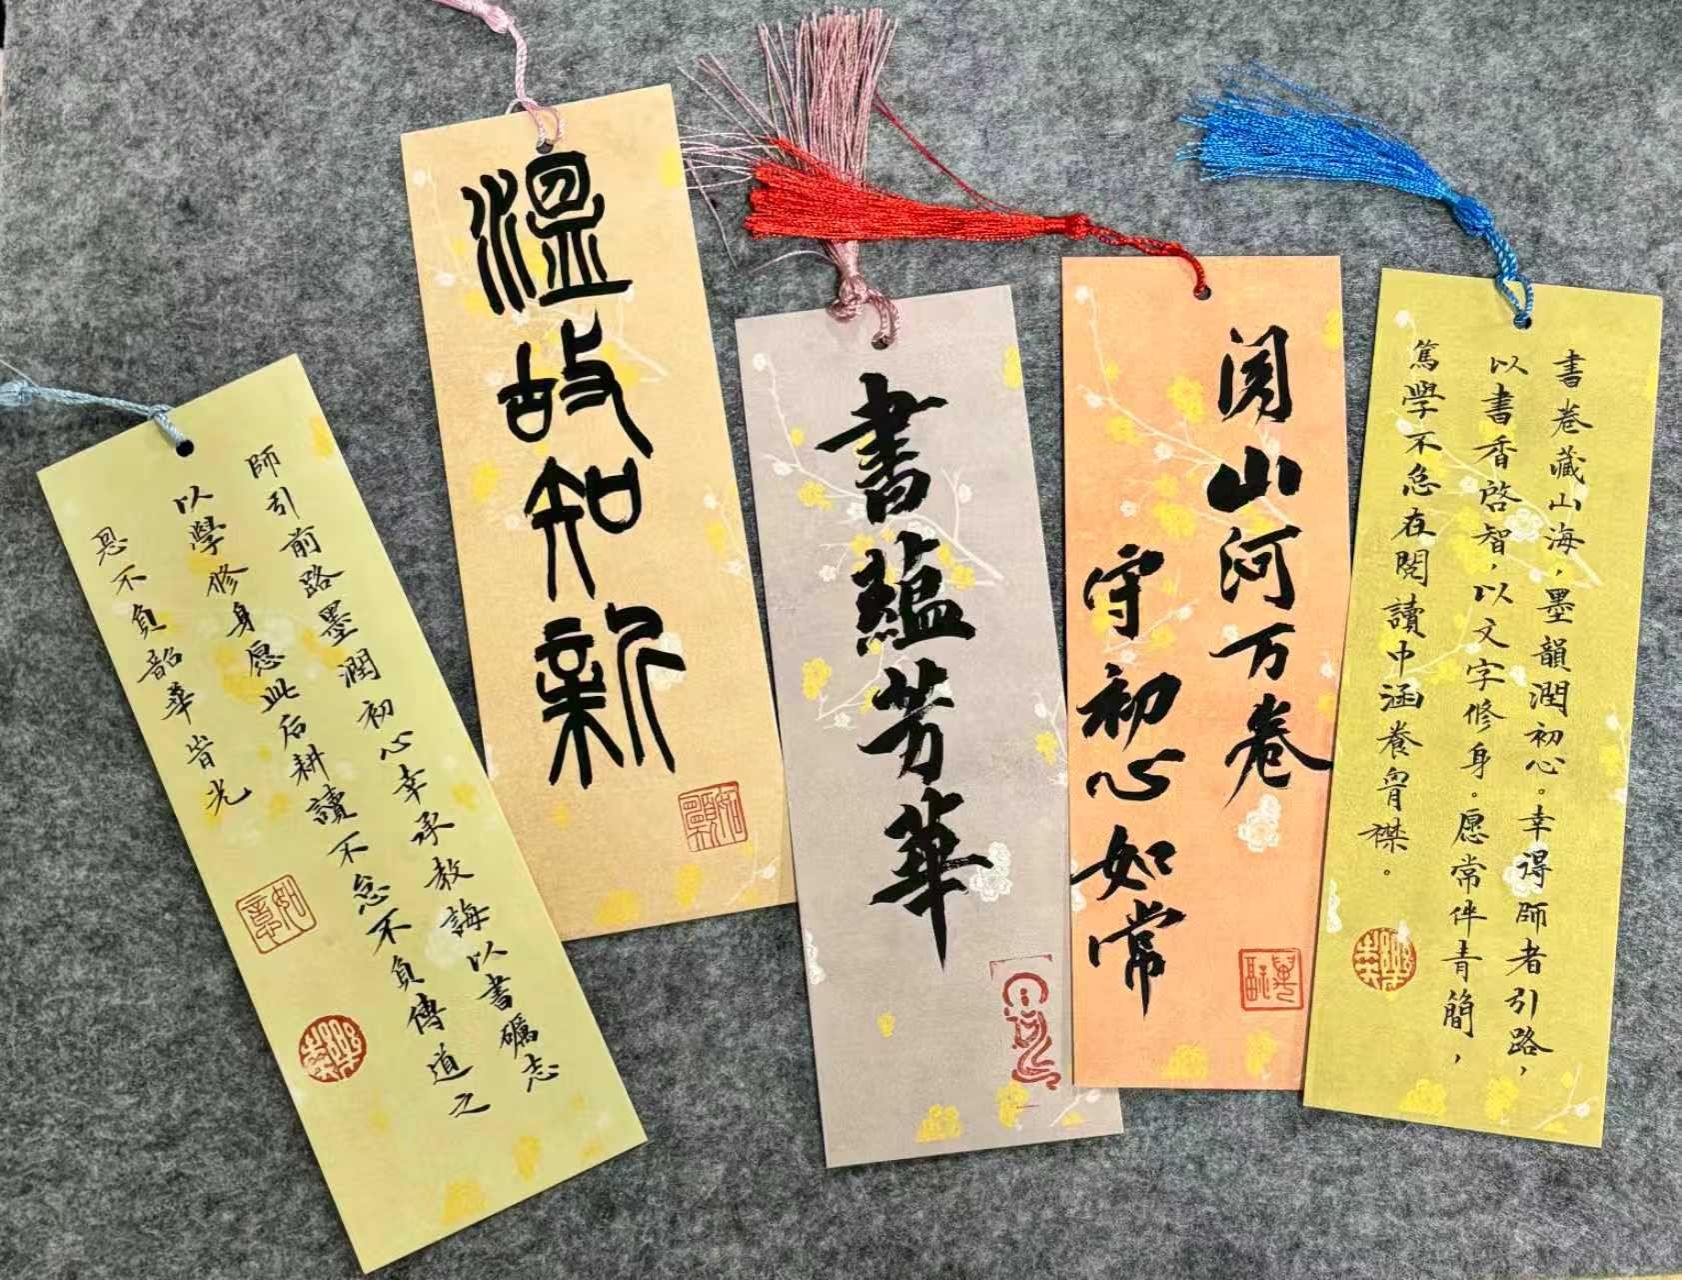 師引前路墨潤初心幸承教誨以書礪志
以學修身愿此后耕讀不怠不負傳道之
恩不負韶華旹光
如意
溫故知新
如願
書蘊芳華
閱山河万卷
守初心如常
書卷藏山海，墨韻潤初心。幸得師者引路，
以書香啓智，以文字修身。愿常伴青簡，
篤學不怠在閱讀中涵養胷襟。